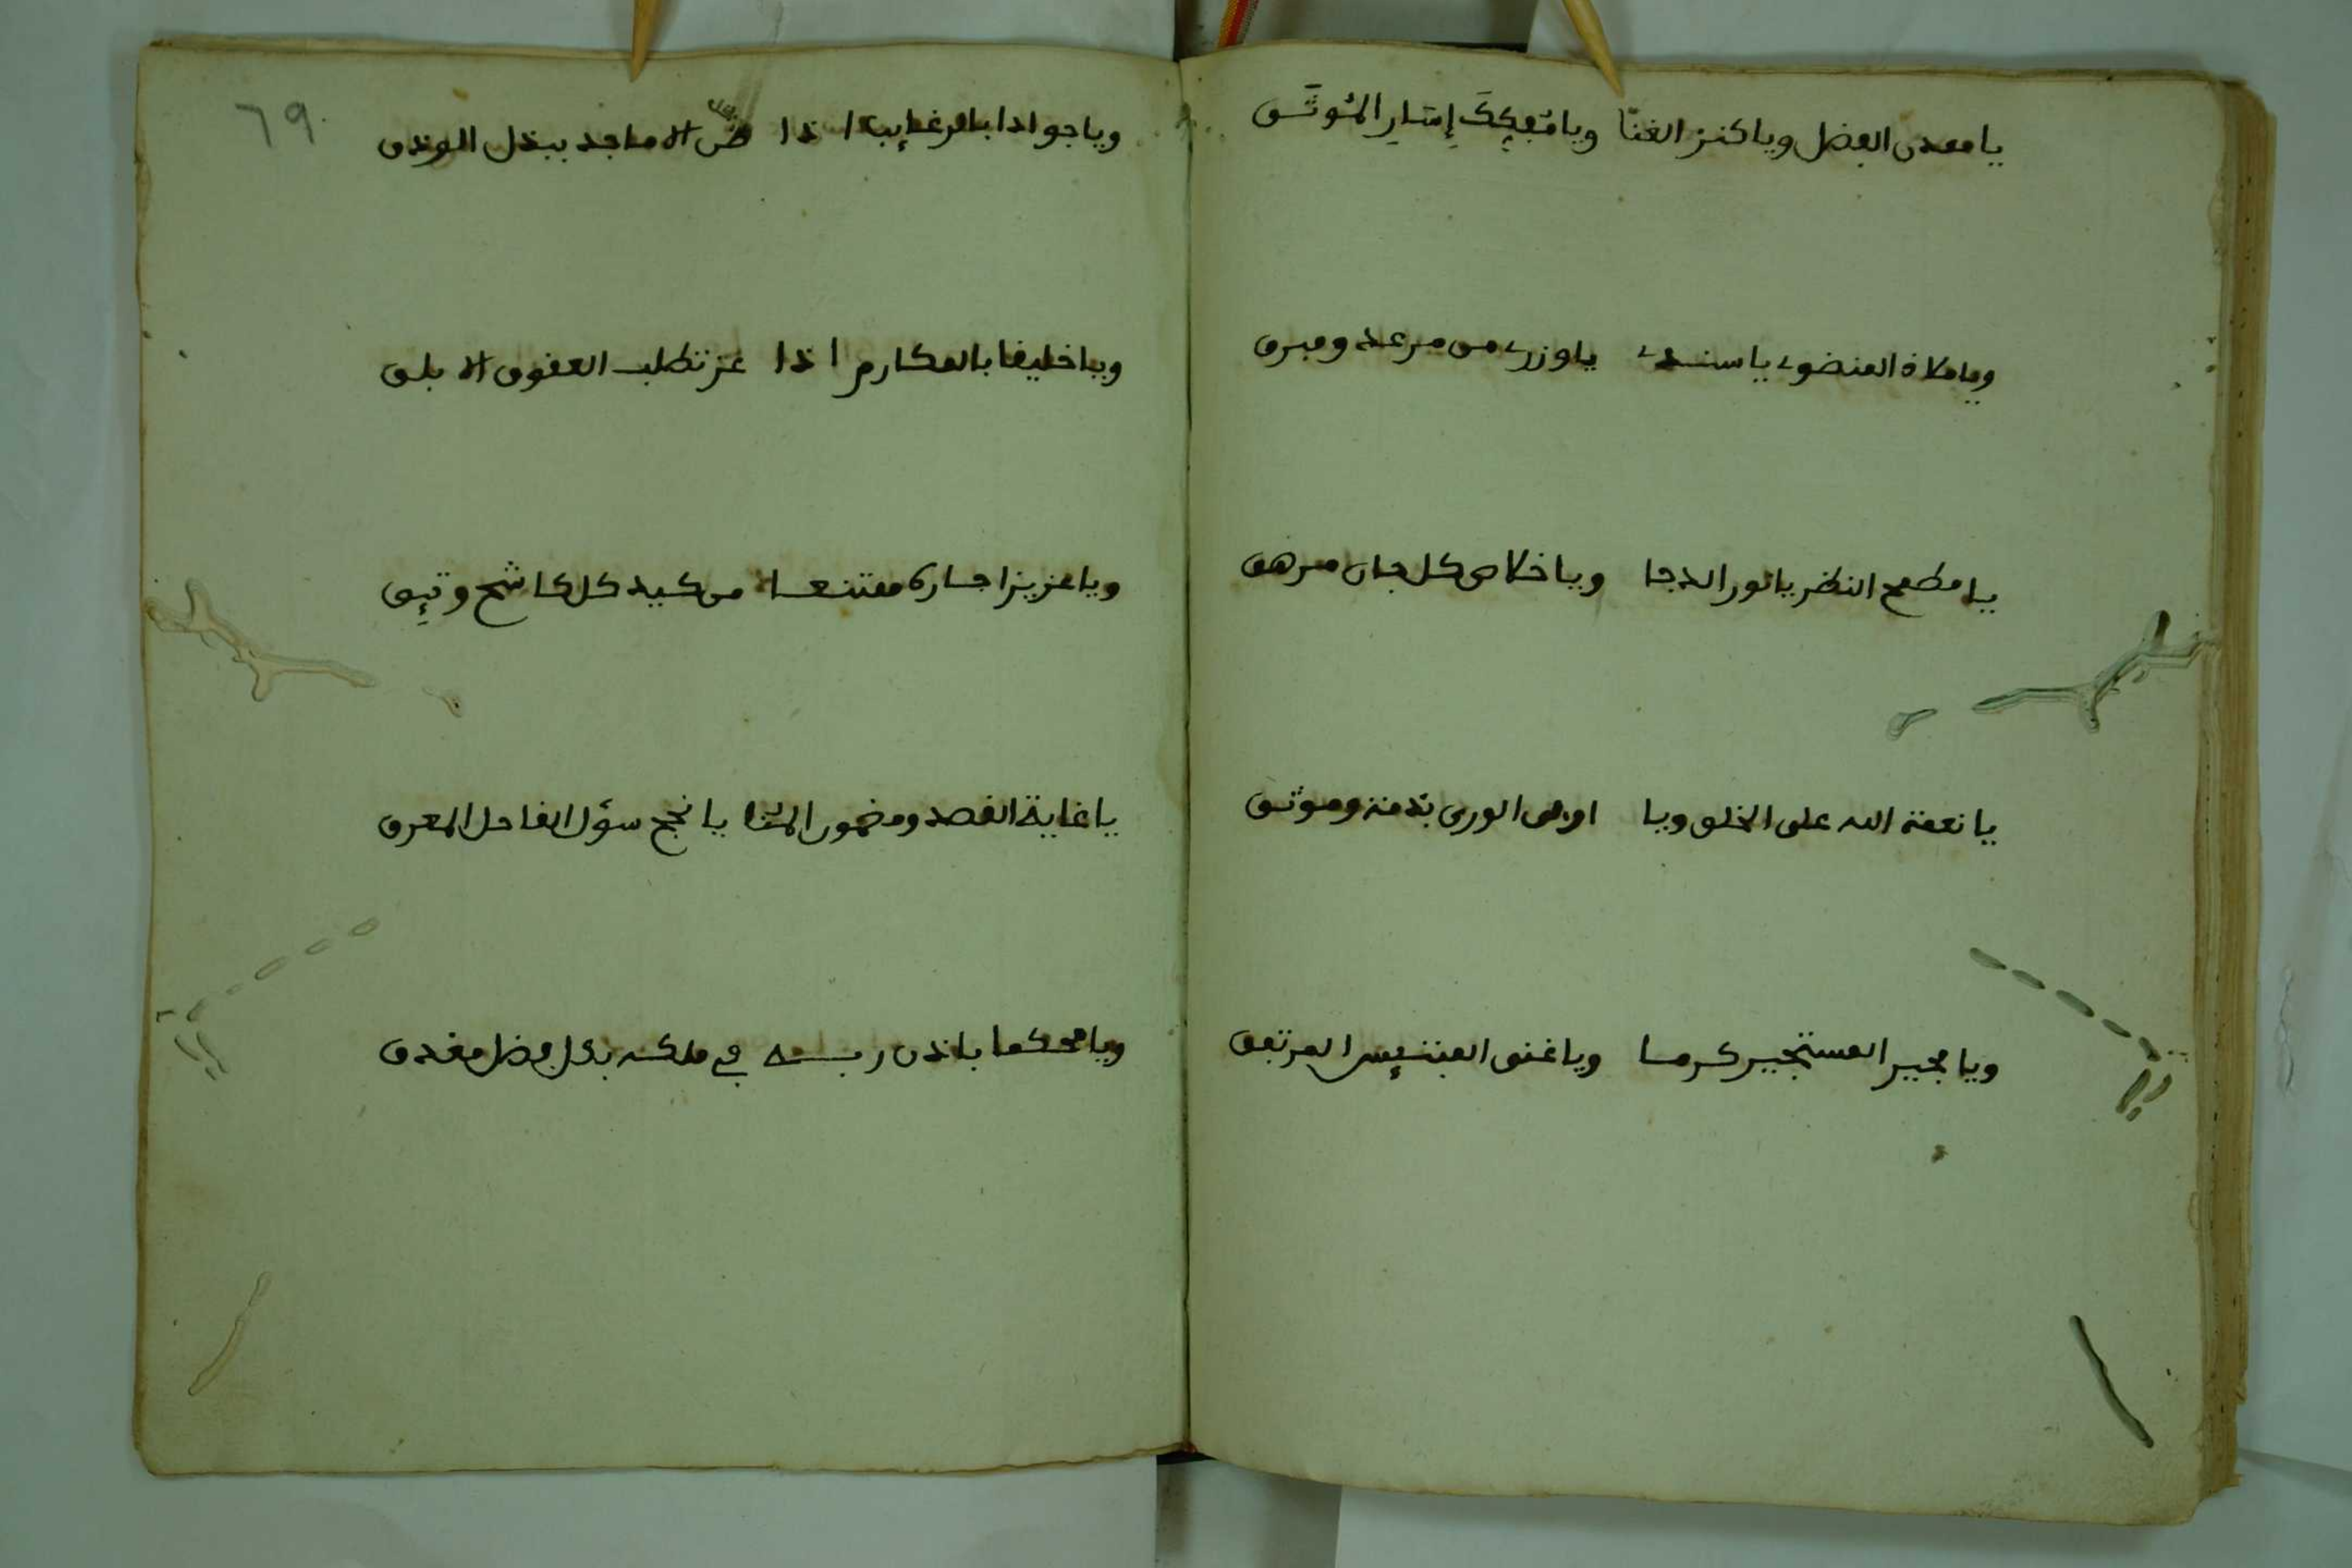 يا معدن الفضل ويا كنز الغنا ويا مفكك إسار الموثق
ويا ملاذ المنضوي يا سندي يا وزري من مرعد ومبرق
يا مطمح النظر يا نور الدجا ويا خلاص كل جان مرهق
يا نعمة الله على الخلق ويا اوفى الورى بذمة وموثق
ويا مجير المستجير كرما ويا غنى المبتئس المرتفق
٦٩
ويا جوادا بالرغايب اذا ضن الا ماجد ببذل
ويا خليفا بالمكارم اذا عز تطلب العقوق الا بلق
ويا عزيزا جاره ممتنعا من كيد كل كاشح وتيق
يا غاية القصد ومضمون المنا يا نجح سؤل الماحل المعرق
ويا محكما باذن ربه في ملكه بكل فضل مغدق